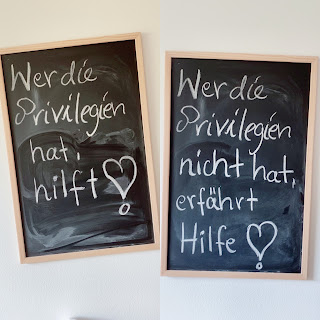 Wer die
Privilegien
hat,
hilft!
Wer die
Privilegien
nicht hat,
erfährt
Hilfe!